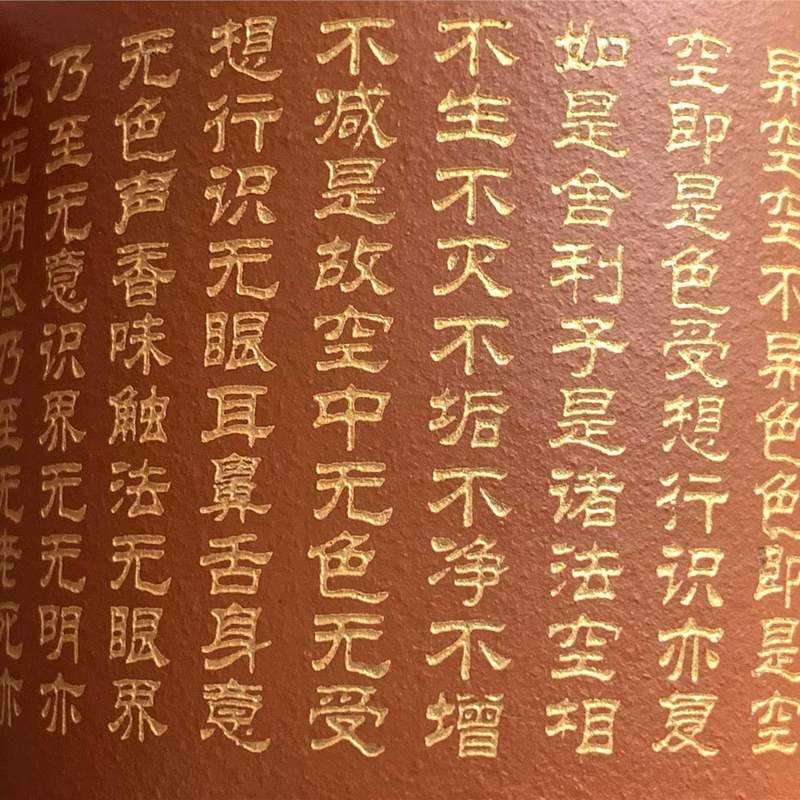 异空空不异色色即是空
空即是色受想行识亦复
如是舍利子是诸法空相
不生不灭不垢不净不增
不减是故空中无色无受
想行识无眼耳鼻舌身意
无色声香味触法无眼界
乃至无意识界无无明亦
无无明尽乃至无老死亦